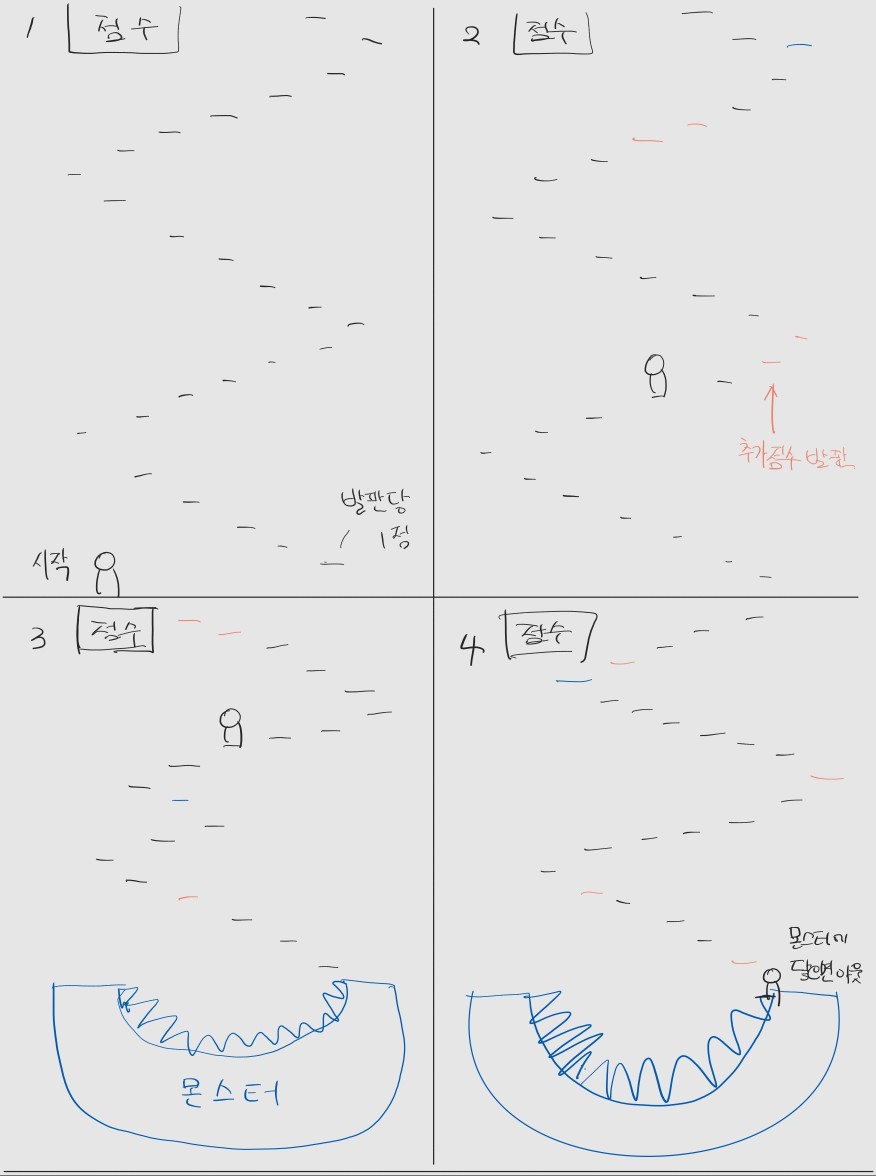 1 점수
발판당
1점
시작
2 점수
추가점수 발판
3 점수
몬스터
4 점수
몬스터에
닿으면 아웃